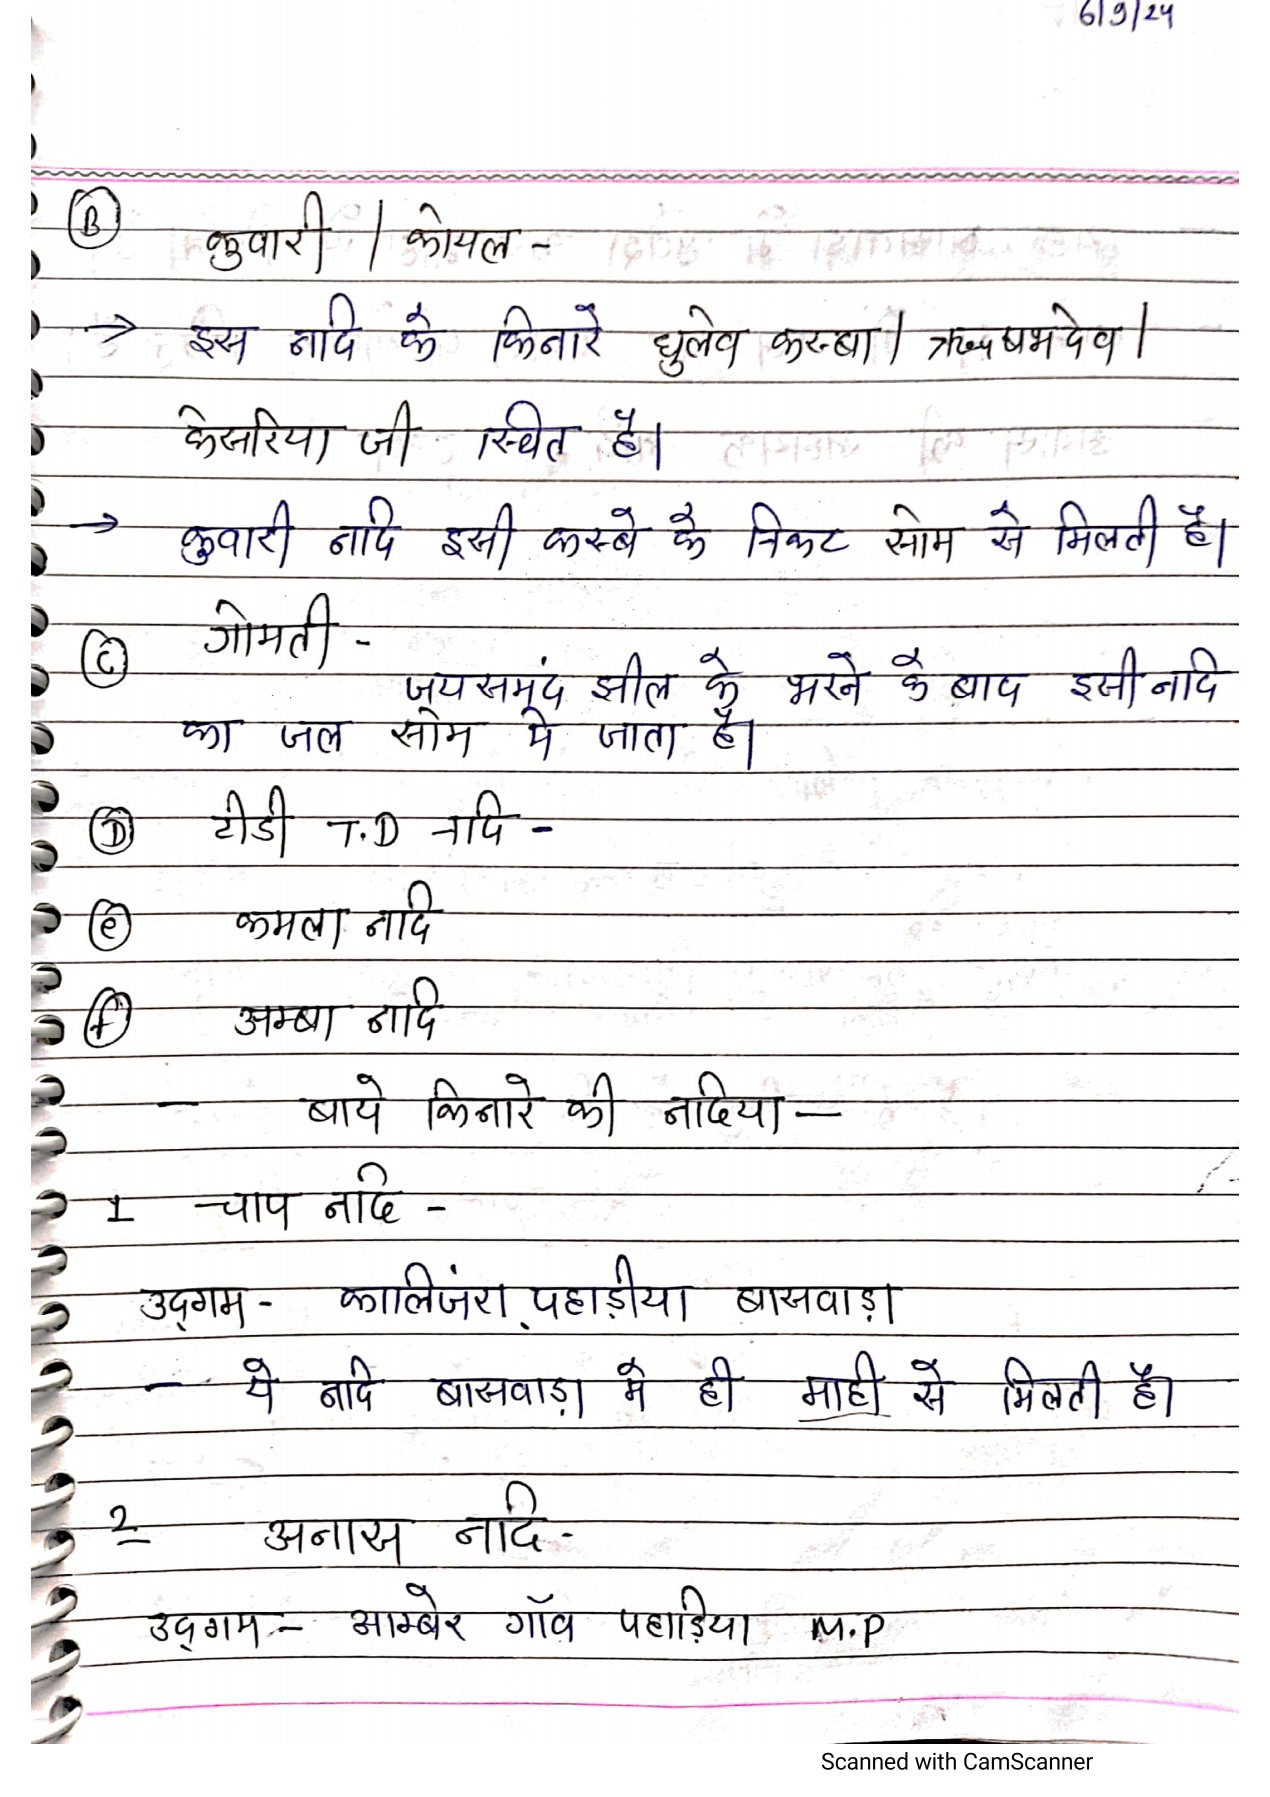 6/9/24
(B) कुवारी / कोयल -
→ इस नदि के किनारे धुलेव कस्बा / ऋषभदेव /
केसरिया जी स्थित है।
→ कुवारी नदि इसी कस्बे के निकट सोम से मिलती है।
(C) गोमती -
जयसमंद झील के भरने के बाद इसी नदि
का जल सोम मे जाता है।
(D) टीडी T.D नदि -
(e) कमला नदि
(f) अम्बा नदि
- बाये किनारे की नदिया -
1 चाप नदि -
उद्गम - कालिजंरा पहाड़ीया बासवाड़ा
- ये नदि बासवाड़ा मे ही माही से मिलती है।
2 अनास नदि -
उद्गम - आम्बेर गॉव पहाड़िया M.P
Scanned with CamScanner